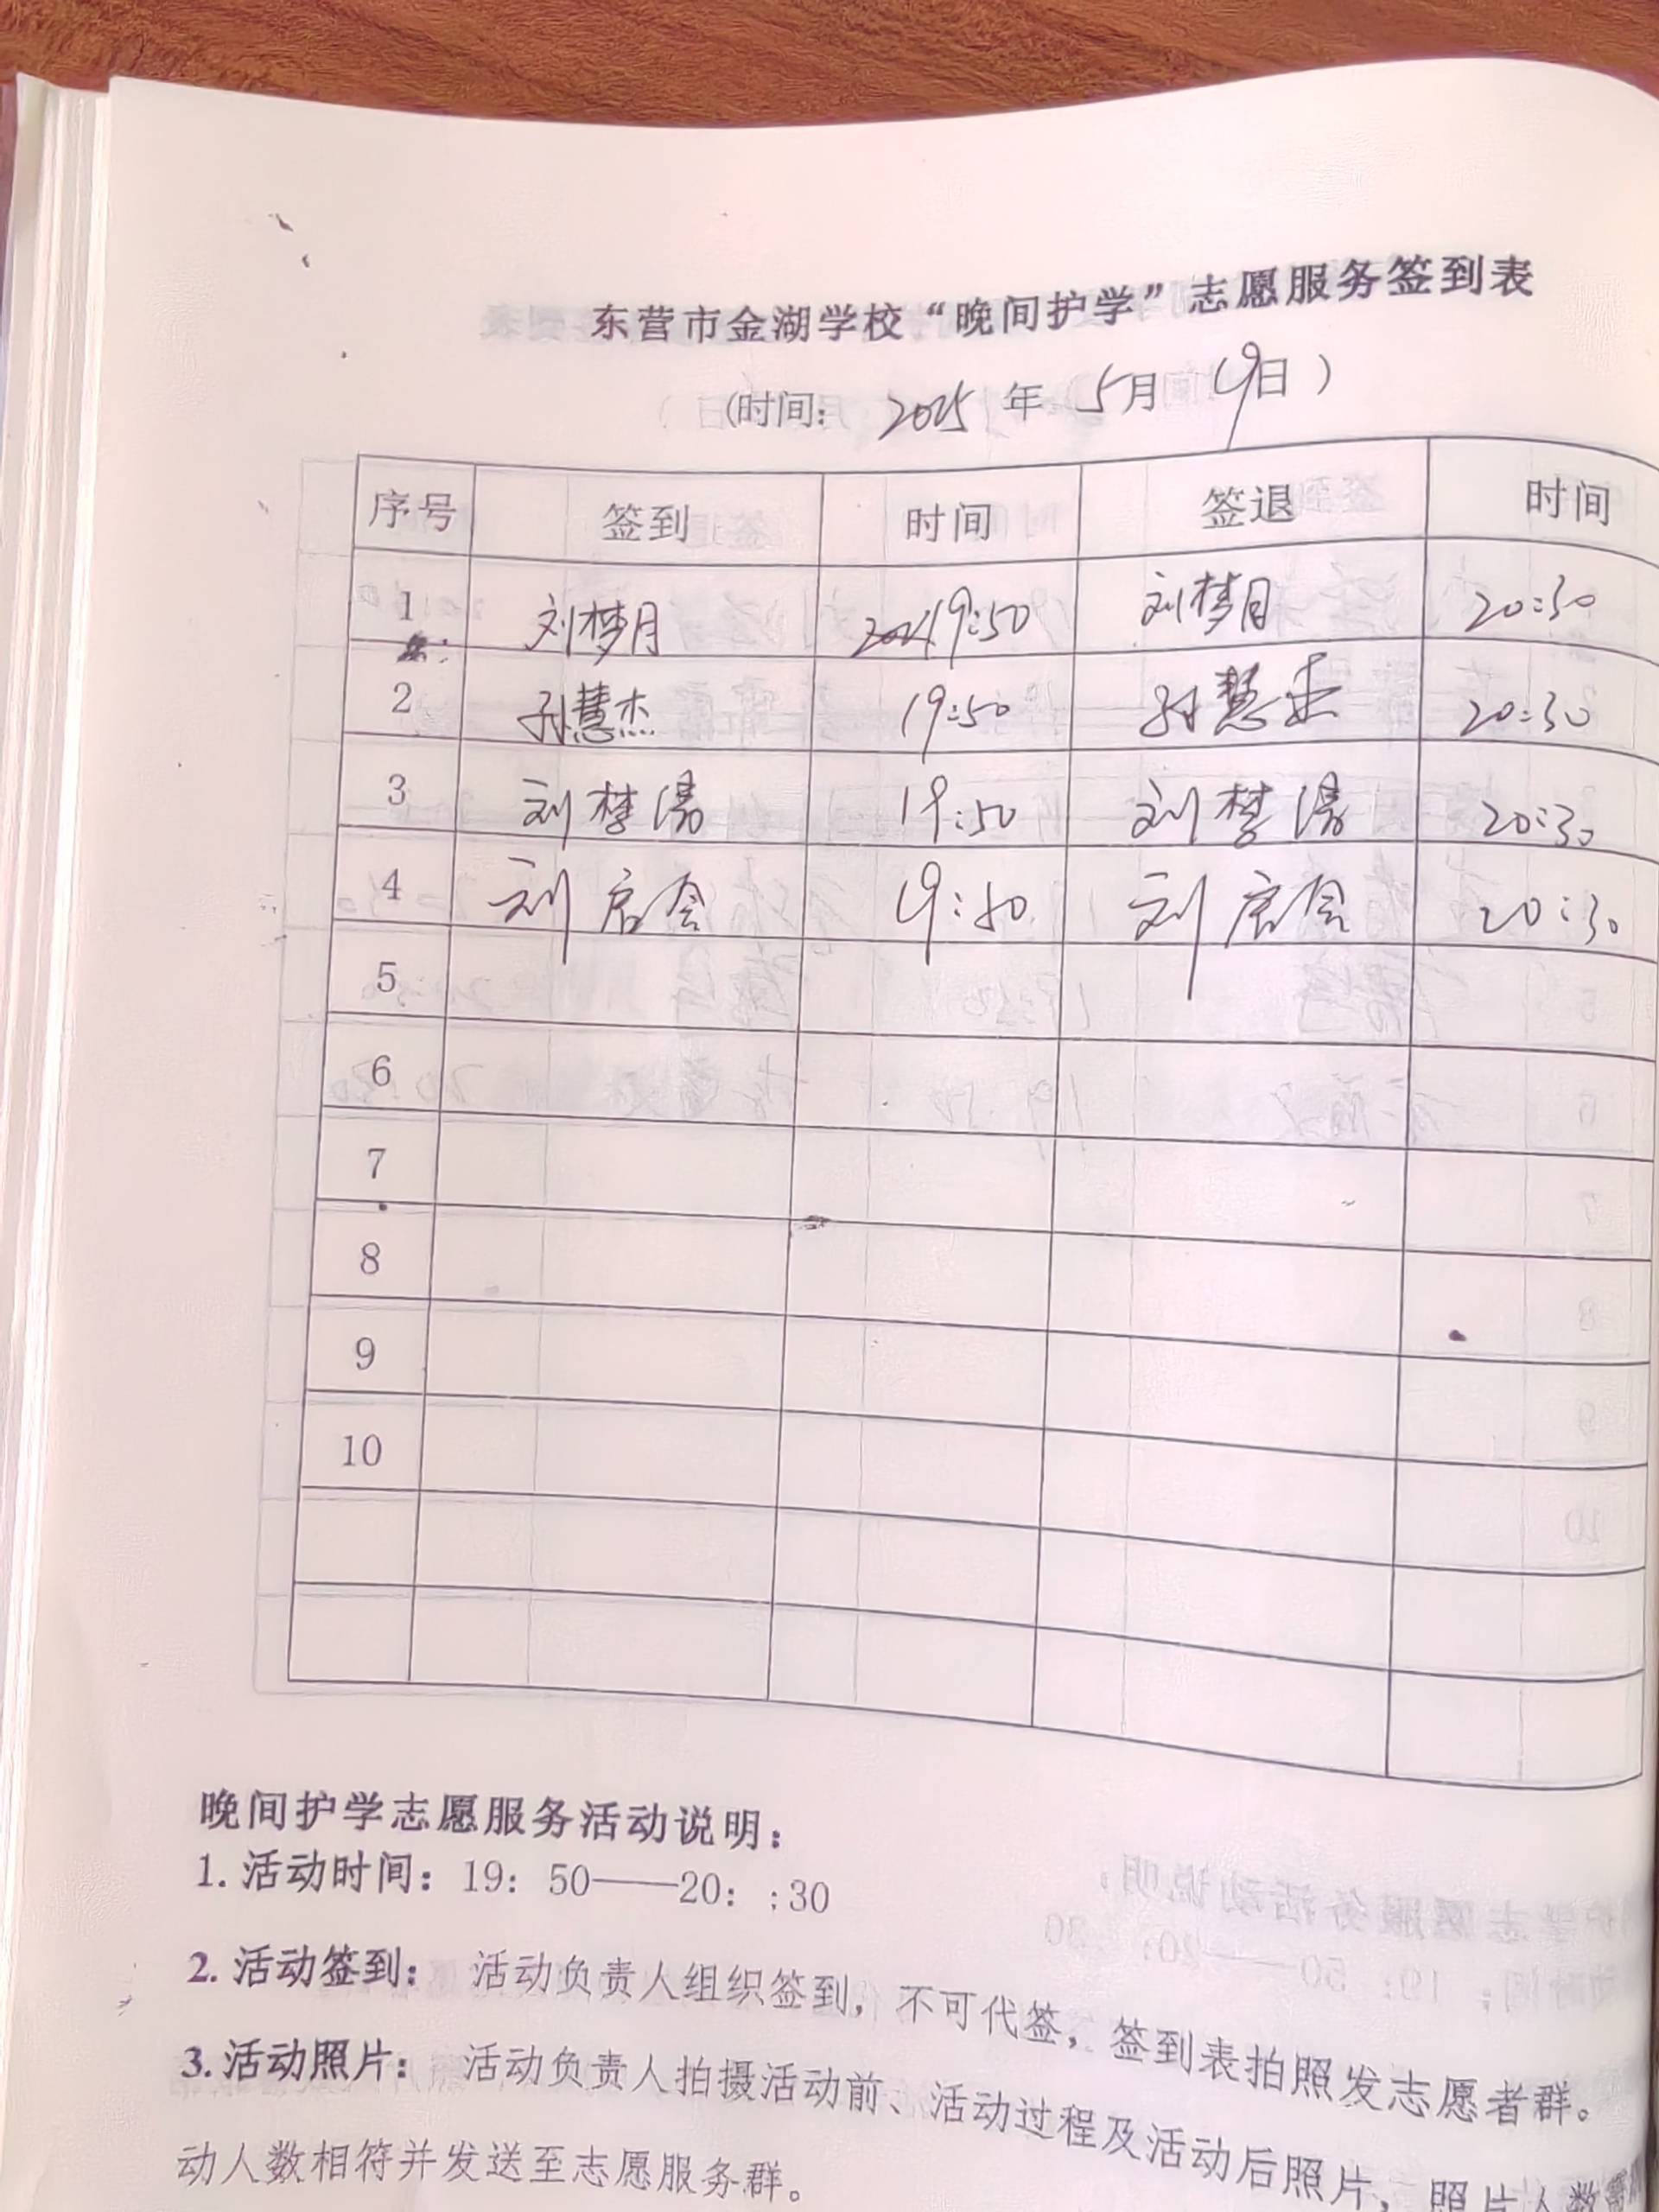 东营市金湖学校“晚间护学”志愿服务签到表
(时间: 2025 年 5月 19日 )
序号 签到 时间 签退 时间
1 刘梦月 19:50 刘梦月 20:30
2 孙慧杰 19:50 孙慧杰 20:30
3 刘梦涛 19:50 刘梦涛 20:30
4 刘启会 19:50 刘启会 20:30
5
6
7
8
9
10
晚间护学志愿服务活动说明:
1. 活动时间: 19: 50——20: :30
2. 活动签到: 活动负责人组织签到, 不可代签, 签到表拍照发志愿者群。
3. 活动照片: 活动负责人拍摄活动前、活动过程及活动后照片, 照片人数
动人数相符并发送至志愿服务群。